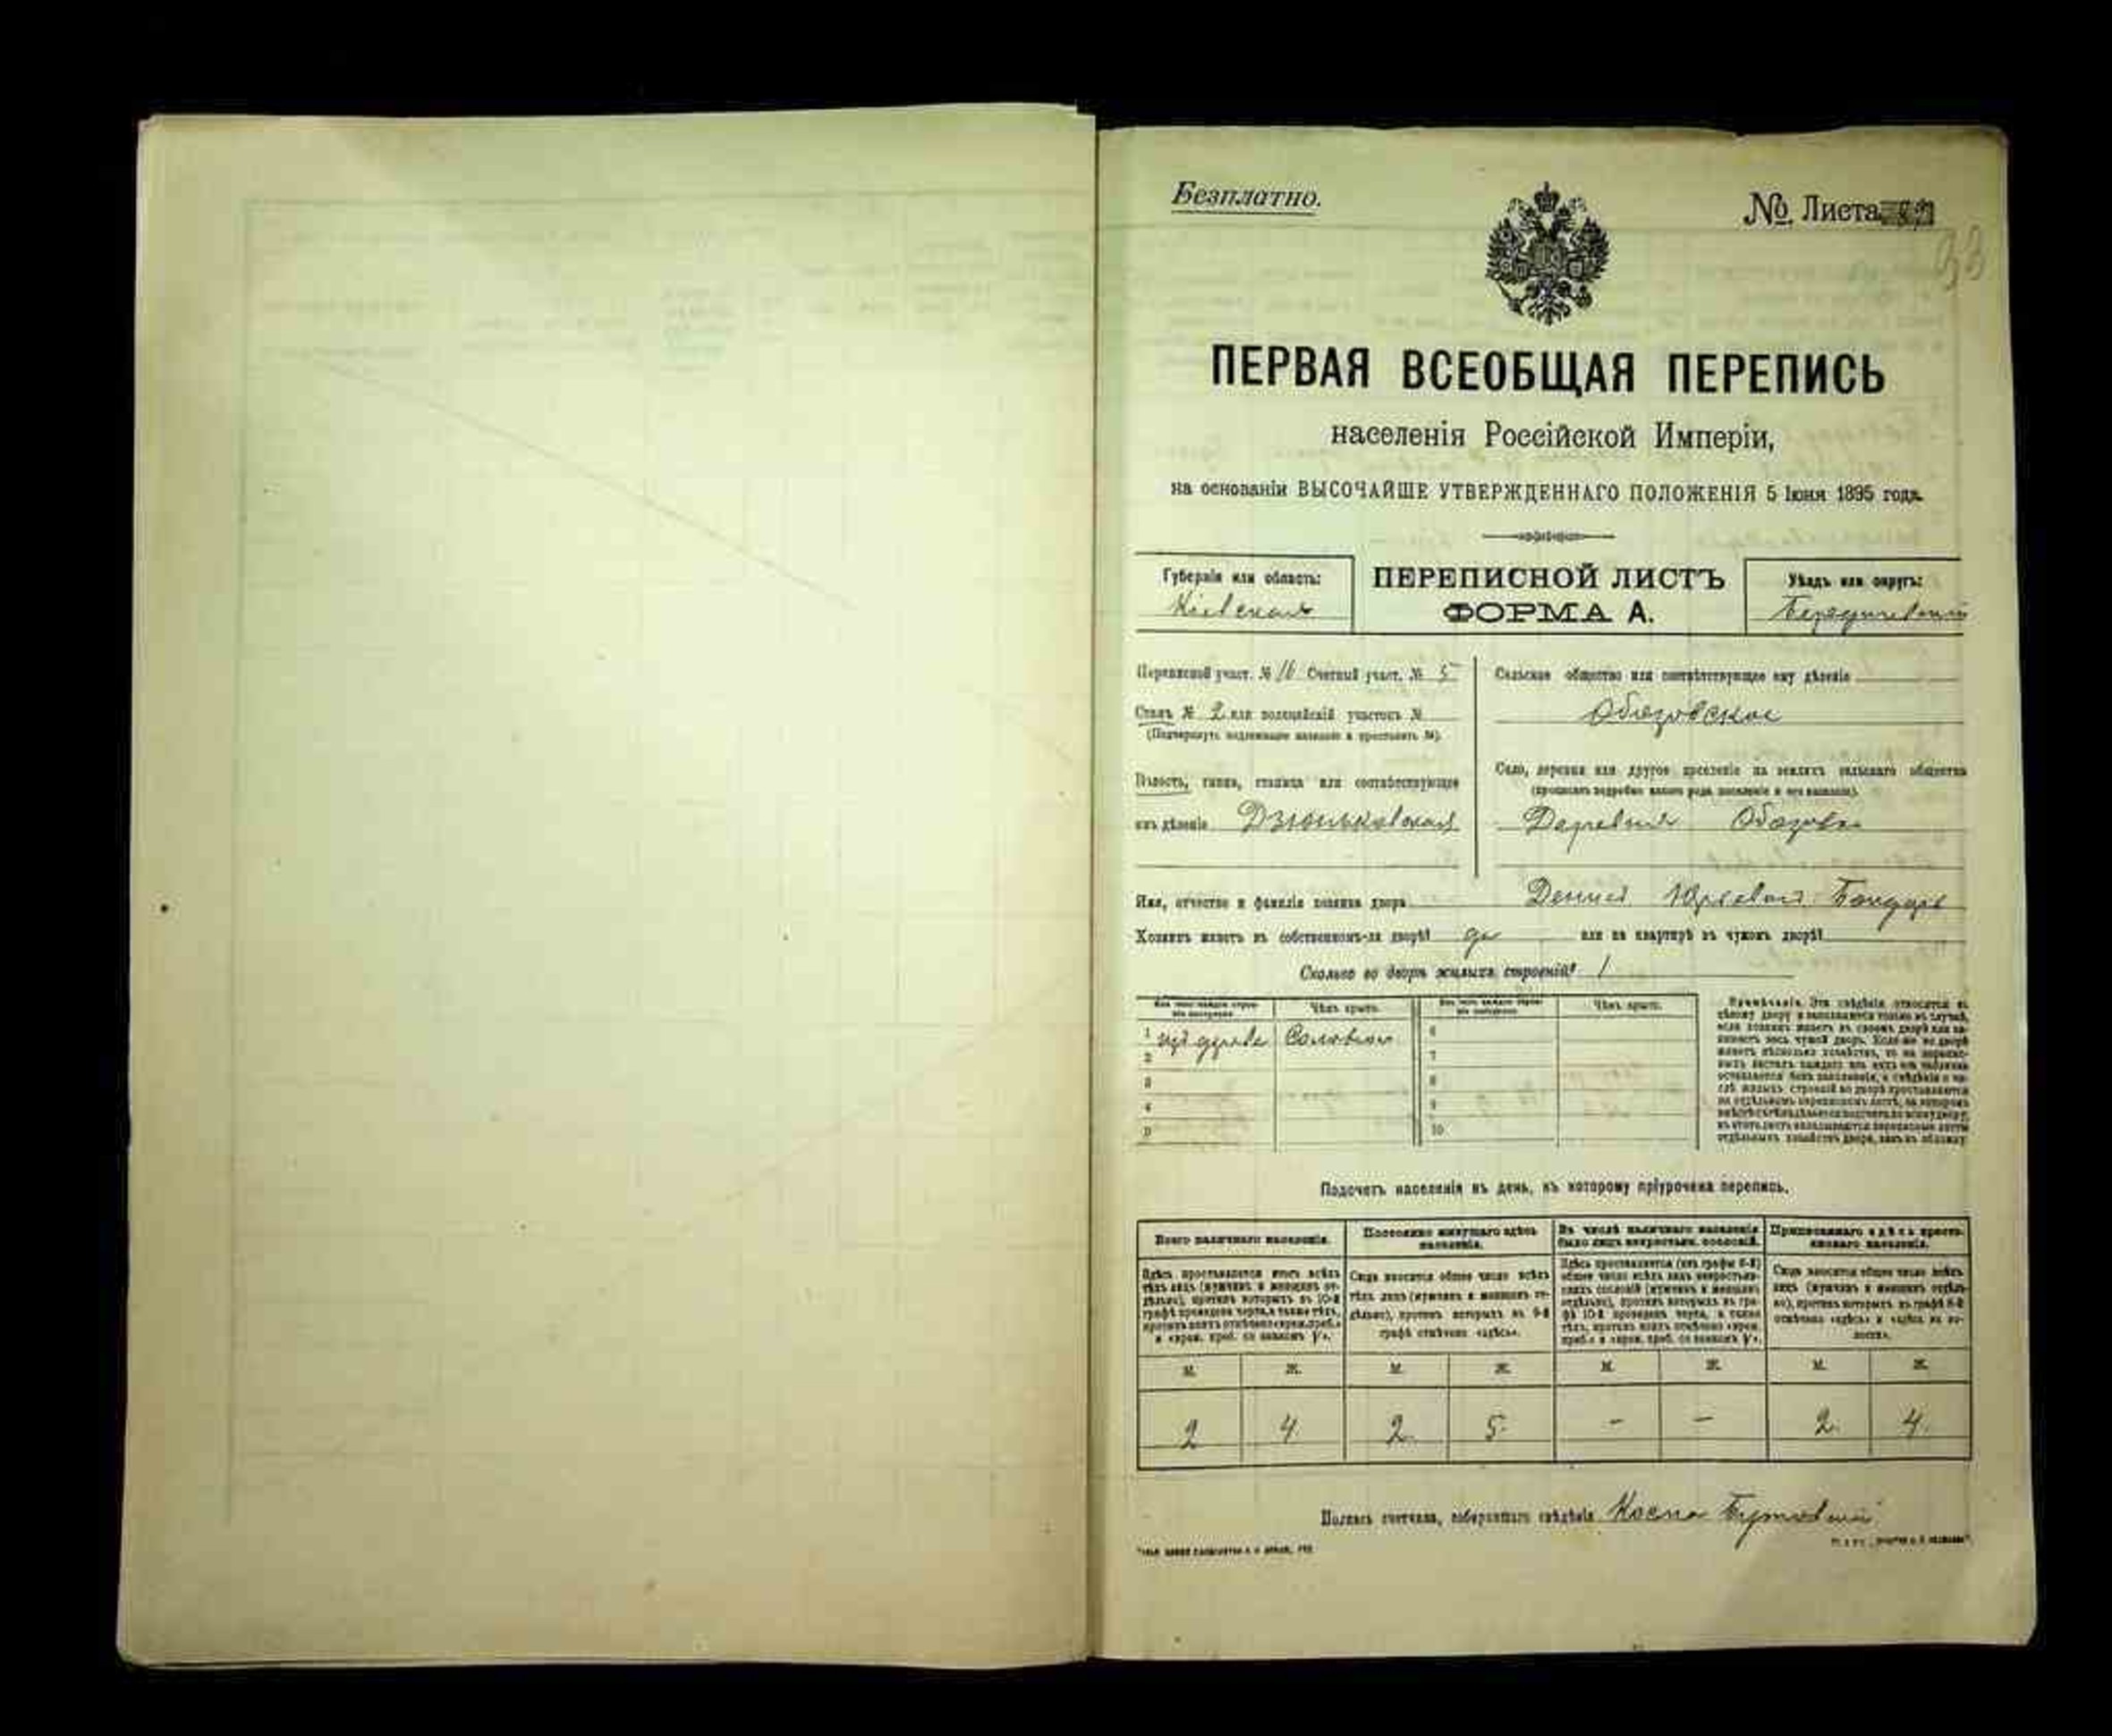 Безплатно.
№ Листа
93
ПЕРВАЯ ВСЕОБЩАЯ ПЕРЕПИСЬ
населенія Россійской Имперіи,
на основаніи ВЫСОЧАЙШЕ УТВЕРЖДЕННАГО ПОЛОЖЕНІЯ 5 Іюня 1895 года.
Губернія или область:
Кіевская
ПЕРЕПИСНОЙ ЛИСТЪ
ФОРМА А.
Уѣздъ или округъ:
Бердичевскій
Переписной участ. № 16 Счетный участ. № 5
Станъ № 2 или полицейскій участокъ №
(Подчеркнуть надлежащее названіе и проставить №).
Волость, гмина, станица или соотвѣтствующее
имъ дѣленіе Дзюньковская
Сельское общество или соотвѣтствующее ему дѣленіе
Обозовское
Село, деревня или другое поселеніе на земляхъ сельскаго общества
(прописать подробно какого рода поселеніе и его названіе).
Деревня Обозовка
Имя, отчество и фамилія хозяина двора Денисъ Юрьевъ Бондарь
Хозяинъ живетъ въ собственномъ-ли дворѣ? да или на квартирѣ въ чужомъ дворѣ?
Сколько во дворѣ жилыхъ строеній? 1
Изъ чего каждое строеніе построено
Чѣмъ крыто.
Чѣмъ крыто.
1 изъ дерева Соломою
2
3
4
5
6
7
8
9
10
Примѣчаніе. Эти свѣдѣнія относятся къ
цѣлому двору и заполняются только въ случаѣ,
если хозяинъ живетъ въ своемъ дворѣ или за-
нимаетъ весь чужой дворъ. Если же во дворѣ
живетъ нѣсколько хозяйствъ, то на перепис-
ныхъ листахъ каждаго изъ нихъ эта табличка
оставляется безъ заполненія, а свѣдѣнія о чи-
слѣ жилыхъ строеній во дворѣ проставляются
на отдѣльномъ переписномъ листѣ, на которомъ
Подсчетъ населенія въ день, къ которому пріурочена перепись.
Всего наличнаго населенія.
Постоянно живущаго здѣсь
населенія.
Въ числѣ наличнаго населенія
было лицъ некрестьян. сословій.
Приписаннаго здѣсь кресть-
янскаго населенія.
Здѣсь проставляется итогъ всѣхъ
тѣхъ лицъ (мужчинъ и женщинъ от-
дѣльно), противъ которыхъ въ 10-й
графѣ проведена черта, а также тѣхъ,
противъ коихъ отмѣчено «врем. преб.»
и «врем. преб. со знакомъ V».
Сюда вносится общее число всѣхъ
тѣхъ лицъ (мужчинъ и женщинъ от-
дѣльно), противъ которыхъ въ 9-й
графѣ отмѣчено «здѣсь».
Здѣсь проставляется (изъ графы 6-й)
общее число всѣхъ лицъ некрестьян-
скихъ сословій (мужчинъ и женщинъ
отдѣльно), противъ которыхъ въ гра-
фѣ 10-й проведена черта, а также
тѣхъ, противъ коихъ отмѣчено «врем.
преб.» и «врем. преб. со знакомъ V».
Сюда вносится общее число всѣхъ
лицъ (мужчинъ и женщинъ отдѣль-
но), противъ которыхъ въ графѣ 8-й
отмѣчено «здѣсь» и «здѣсь въ во-
лости».
М. Ж. М. Ж. М. Ж. М. Ж.
2 4 2 5 – – 2 4
Подпись счетчика, собиравшаго свѣдѣнія Косма Бутовскій